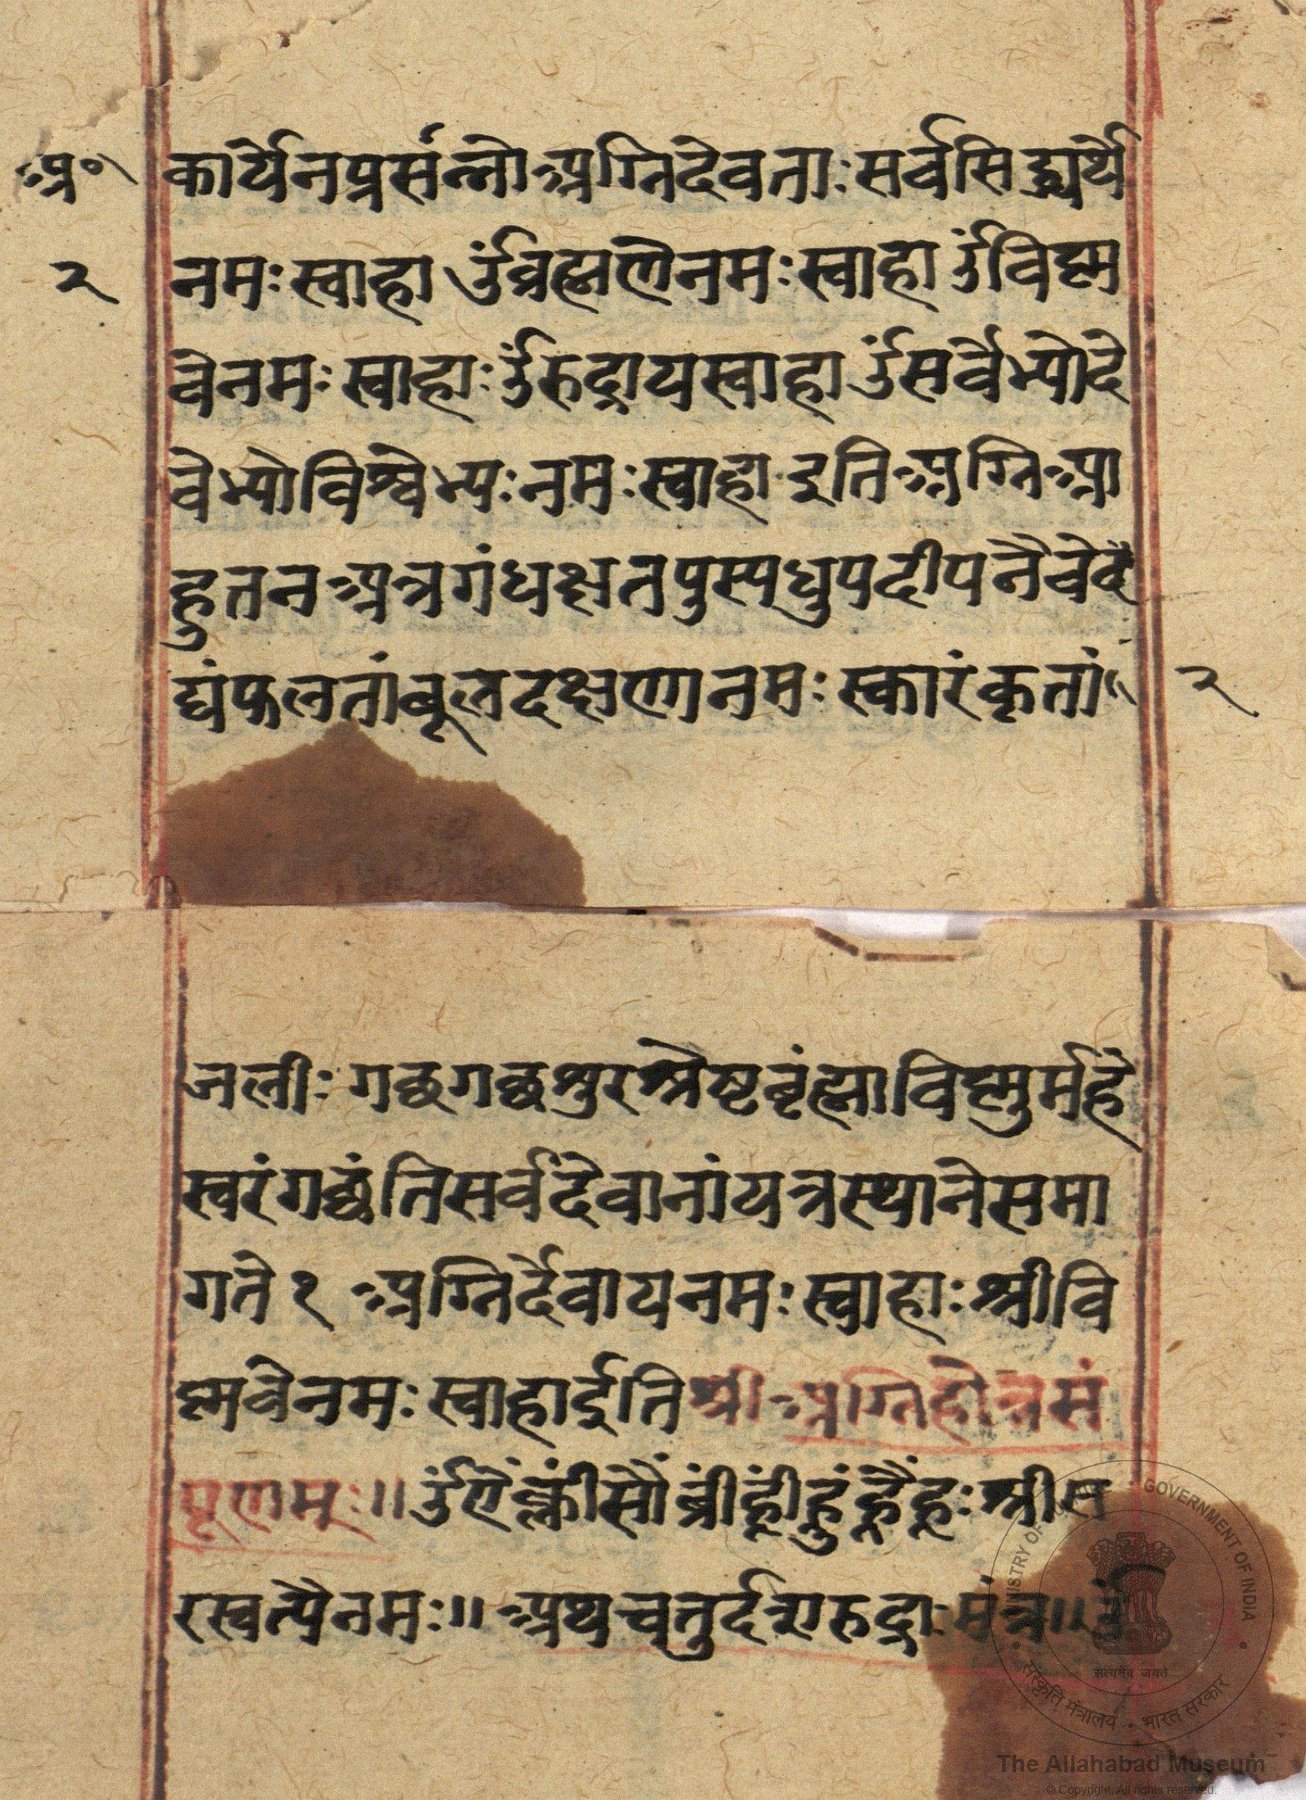 अ०
२
कार्येनप्रसंन्नोअग्निदेवताःसर्वसिद्ध्यर्थे
नमःस्वाहा ॐब्रह्मणेनमःस्वाहा ॐविष्ण
वेनमःस्वाहाःॐरुद्रायस्वाहा ॐसर्वेभ्योदे
वेभ्योविश्वेभ्यःनमःस्वाहा इतिअग्निआ
हुतनअन्नगंधक्षतपुस्पधुपदीपनैवेद्
द्यंफलतांबूलदक्षणानमःस्कारंकृतां॥
२
जलीः गछगछशुरश्रेष्टबृंह्माविष्णुर्महे
स्वरंगछंतिसर्वदेवानांयत्रस्थानेसमा
गते १ अग्निर्देवायनमःस्वाहाःश्रीवि
ष्णवेनमःस्वाहाईतिश्रीअग्निहोत्रसं
पूणमः॥ ॐऐंक्लींसौंब्रींह्रींह्रुंह्रैंह्रःश्रीस
रस्वत्यैनमः॥ अथचतुर्दशरुद्राःमंत्र॥ॐ
सत्यमेव जयते
MINISTRY OF CULTURE GOVERNMENT OF INDIA
संस्कृति मंत्रालय • भारत सरकार
The Allahabad Museum
© Copyright. All rights reserved.